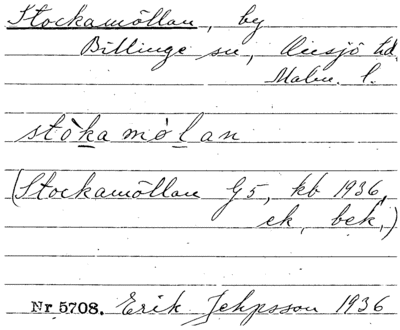 Stockamöllan, by
Billinge sn, Onsjö hd.
Malm. l.
stòkamø̀lan
(Stockamöllan G5, kb 1936,
ek, bek,)
Nr 5708. Erik Jeppsson 1936